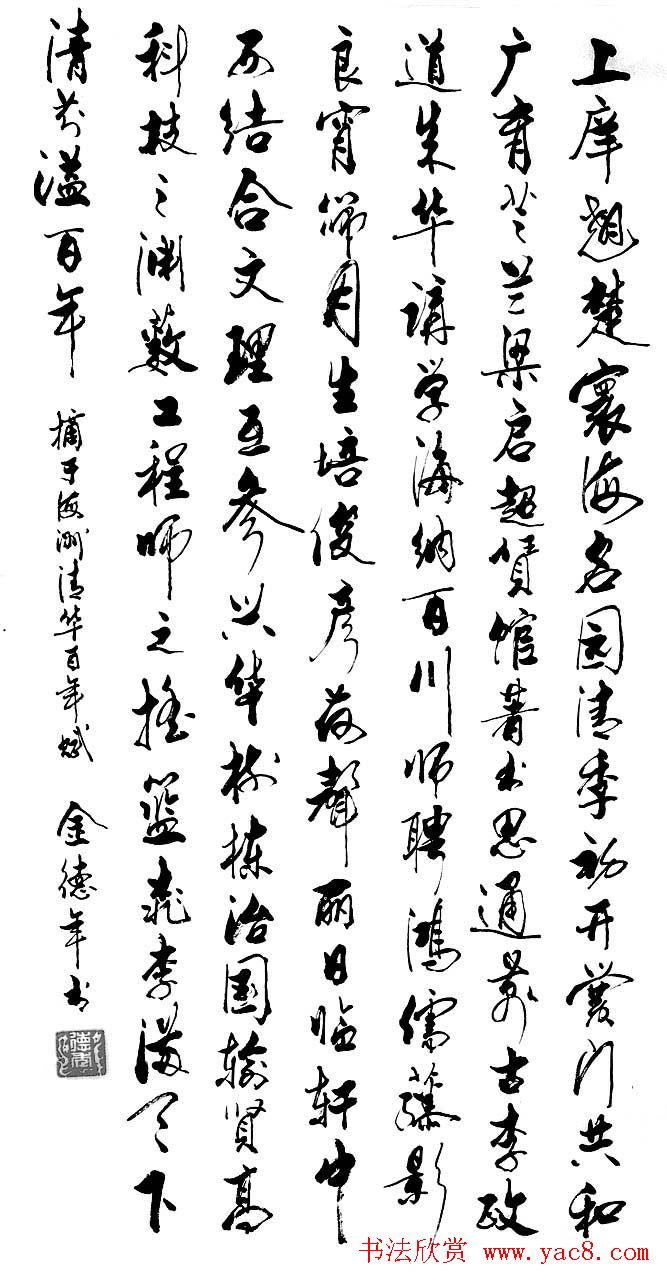 上庠翘楚寰海名园清季初开黉门共和
广育芝兰梁启超赁馆著书思通前古李政
道来华讲学海纳百川师聘鸿儒藤影
良宵筛月生培俊彦荷聲丽日临轩中
西结合文理互参兴华树栋治国输贤高
科技之渊薮工程师之摇篮桃李满天下
清芬溢百年 摘于海洲清华百年赋 金德年书
书法欣赏 www.yac8.com